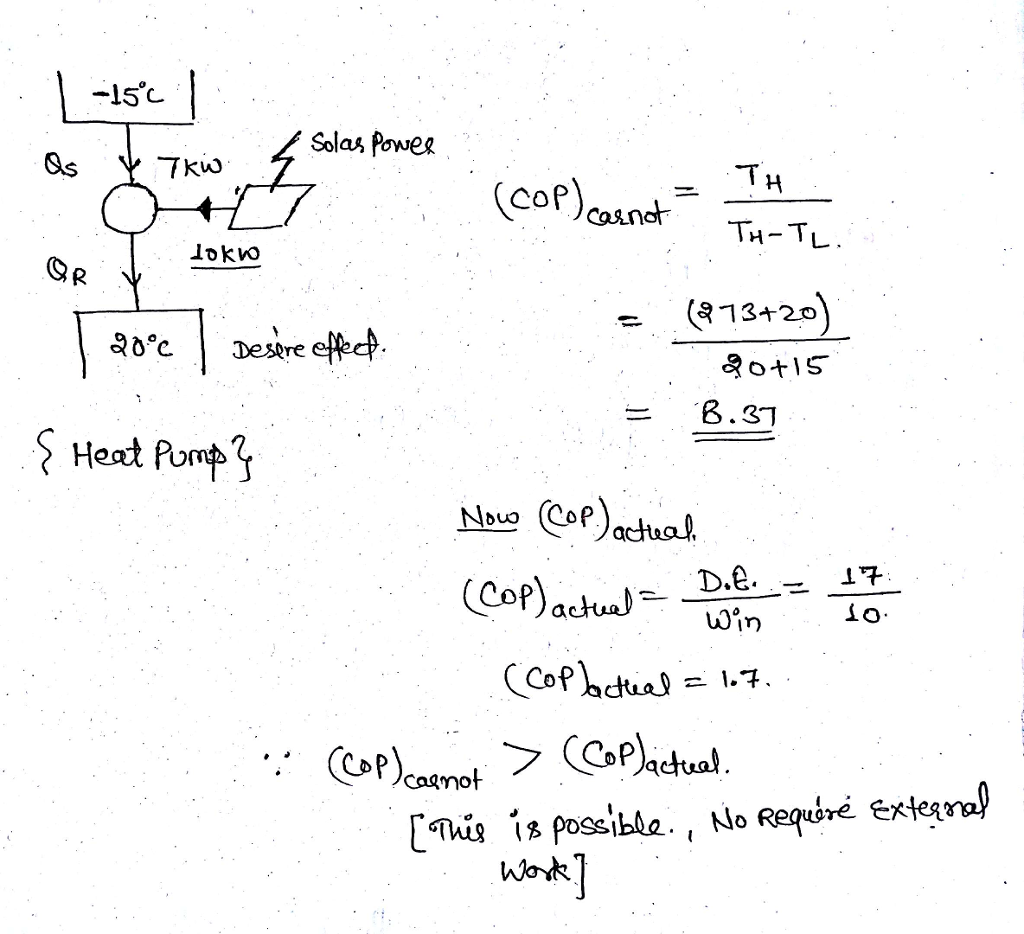 -15°C
Solar Power
Qs 7KW
10KW
QR
20°C Desire effect.
{ Heat Pump }
(COP)carnot = TH / TH-TL.
= (273+20) / 20+15
= 8.37
Now (COP)actual.
(COP)actual = D.E. / Win = 17 / 10.
(COP)actual = 1.7.
∵ (COP)carnot > (COP)actual.
[This is possible., No Require External
Work]